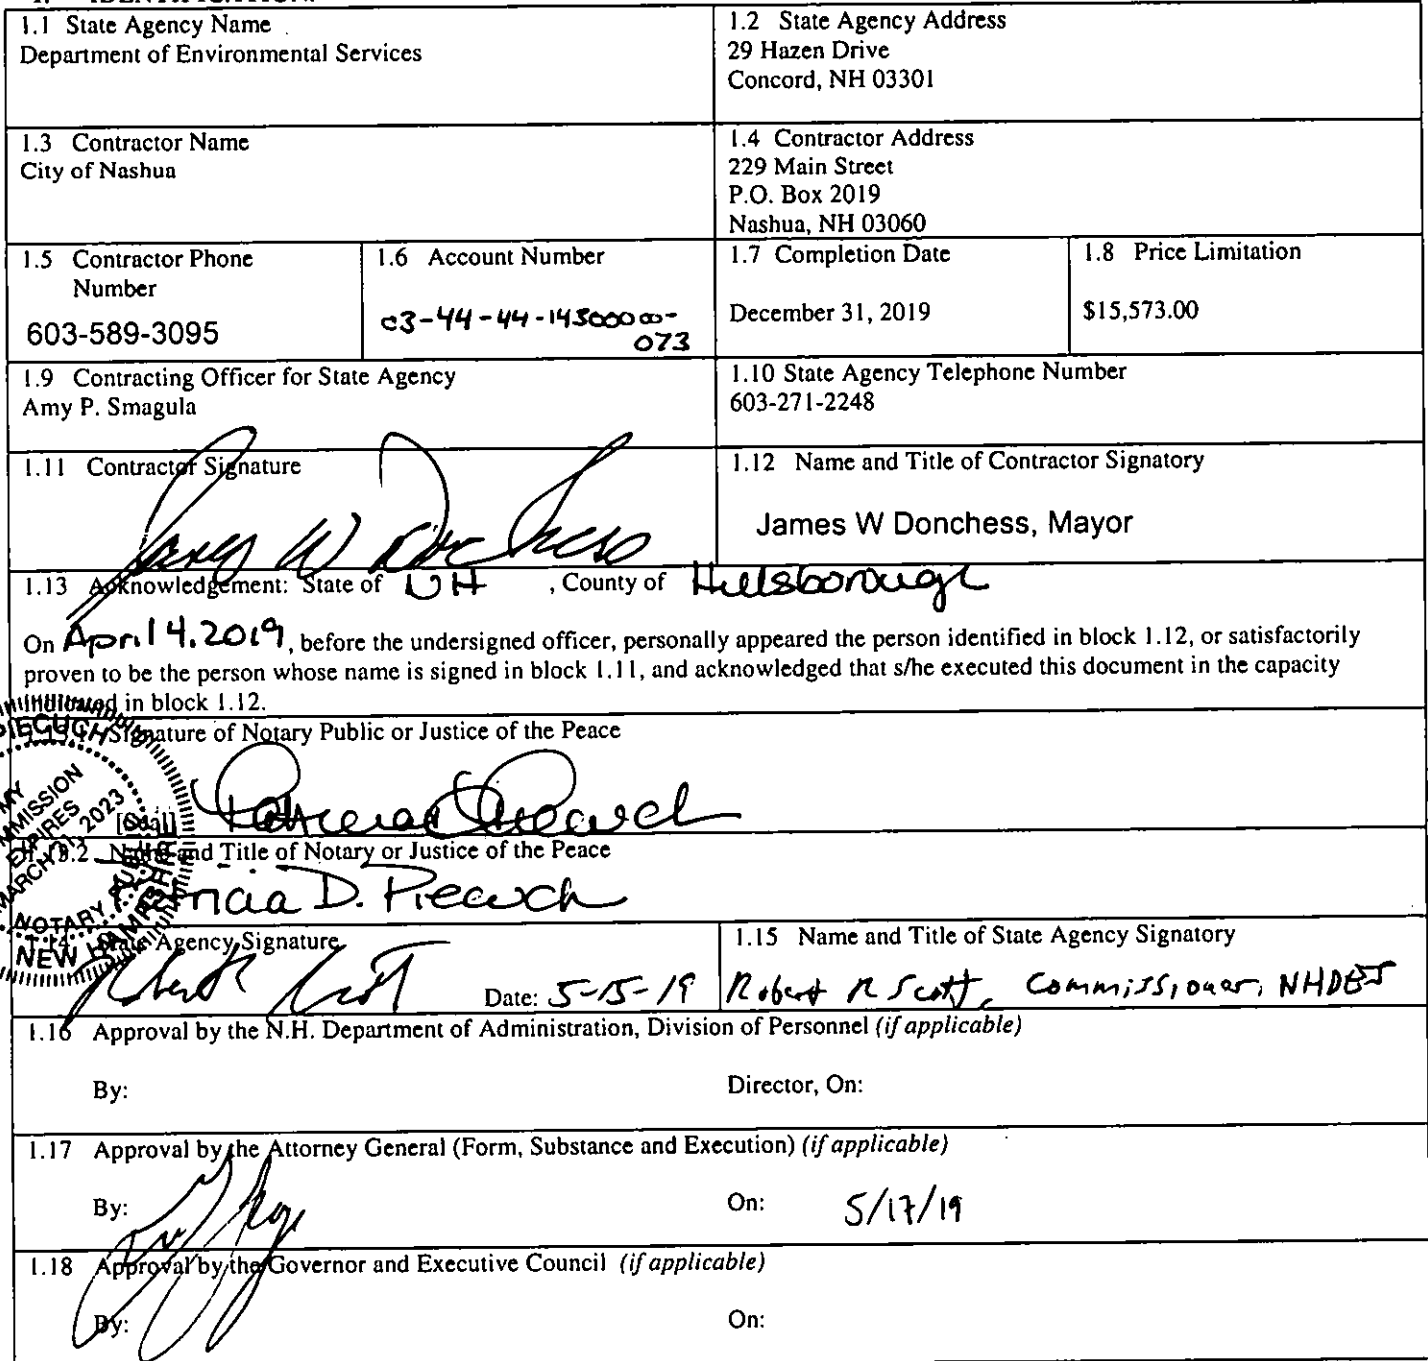 1.1 State Agency Name
Department of Environmental Services
1.2 State Agency Address
29 Hazen Drive
Concord, NH 03301
1.3 Contractor Name
City of Nashua
1.4 Contractor Address
229 Main Street
P.O. Box 2019
Nashua, NH 03060
1.5 Contractor Phone
Number
603-589-3095
1.6 Account Number
03-44-44-14300000-
073
1.7 Completion Date
December 31, 2019
1.8 Price Limitation
$15,573.00
1.9 Contracting Officer for State Agency
Amy P. Smagula
1.10 State Agency Telephone Number
603-271-2248
1.11 Contractor Signature
James W Donchess
1.12 Name and Title of Contractor Signatory
James W Donchess, Mayor
1.13 Acknowledgement: State of NH , County of Hillsborough
On April 4, 2019, before the undersigned officer, personally appeared the person identified in block 1.12, or satisfactorily
proven to be the person whose name is signed in block 1.11, and acknowledged that s/he executed this document in the capacity
indicated in block 1.12.
Signature of Notary Public or Justice of the Peace
[Seal]
PIECUCH
MY
COMMISSION
EXPIRES
MARCH 2023
NOTARY PUBLIC
NEW HAMPSHIRE
Name and Title of Notary or Justice of the Peace
Patricia D. Piecuch
1.14 State Agency Signature
Date: 5-15-19
1.15 Name and Title of State Agency Signatory
Robert R Scott, Commissioner, NHDES
1.16 Approval by the N.H. Department of Administration, Division of Personnel (if applicable)
By:
Director, On:
1.17 Approval by the Attorney General (Form, Substance and Execution) (if applicable)
By:
On: 5/17/19
1.18 Approval by the Governor and Executive Council (if applicable)
By:
On: